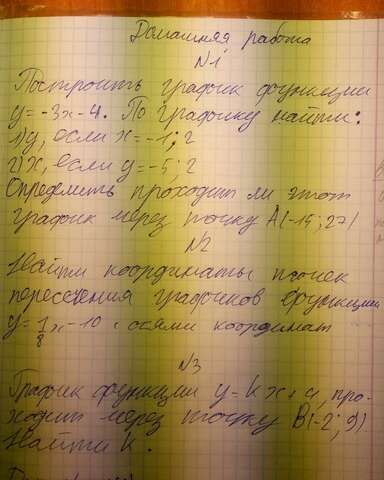 Домашняя работа
N1
Построить график функции
y = -3x - 4. По графику найти:
1) y, если x = -1; 2
2) x, если y = -5; 2
Определить проходит ли этот
график через точку A(-15; 27)
N2
Найти координаты точек
пересечения графиков функции
y = 1/8 x - 10 с осями координат
N3
График функции y = kx + 4, про-
ходит через точку B(-2; 9).
Найти k.